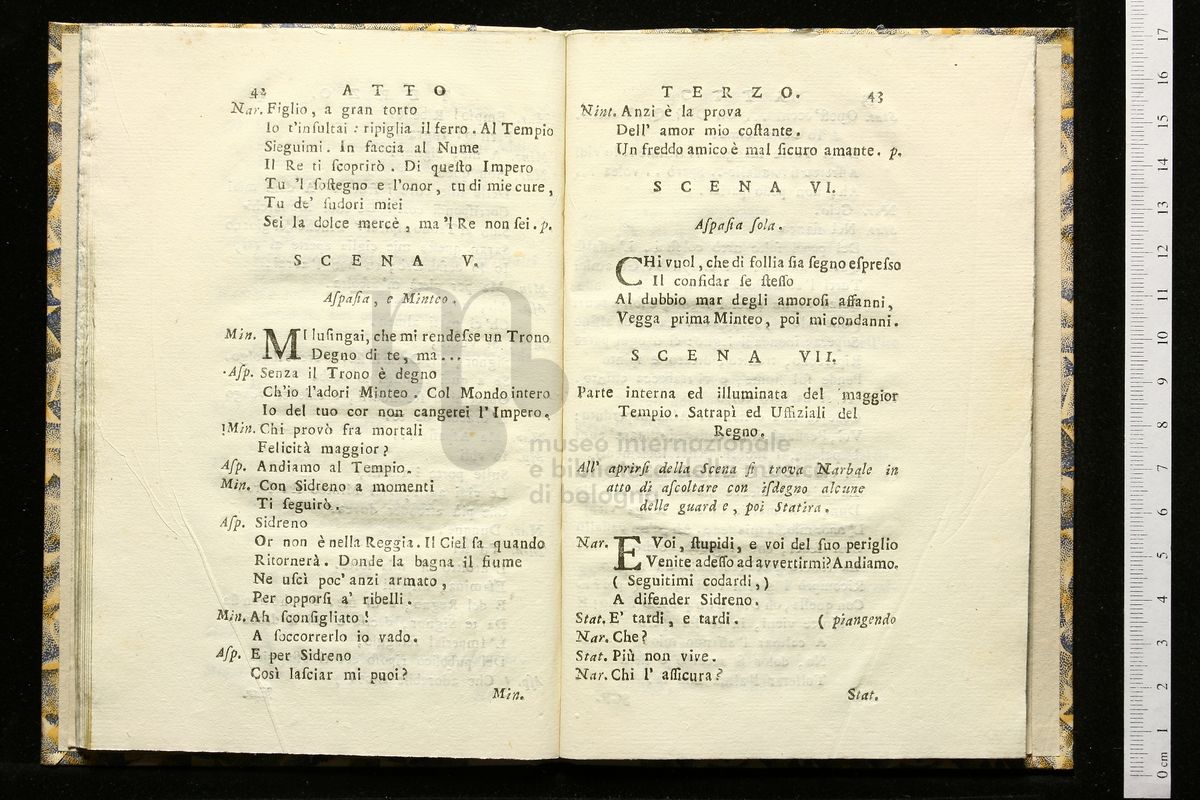 42 ATTO
Nar. Figlio, a gran torto
Io t'inſultai : ripiglia il ferro. Al Tempio
Sieguimi. In faccia al Nume
Il Re ti ſcoprirò. Di queſto Impero
Tu 'l ſoſtegno e l'onor, tu di mie cure,
Tu de' ſudori miei
Sei la dolce mercè, ma 'l Re non ſei. p.
SCENA V.
Aſpaſia, e Minteo.
Min. MI luſingai, che mi rendeſse un Trono
Degno di te, ma...
Aſp. Senza il Trono è degno
Ch'io l'adori Minteo. Col Mondo intero
Io del tuo cor non cangerei l'Impero.
Min. Chi provò fra mortali
Felicità maggior?
Aſp. Andiamo al Tempio.
Min. Con Sidreno a momenti
Ti ſeguirò.
Aſp. Sidreno
Or non è nella Reggia. Il Ciel ſa quando
Ritornerà. Donde la bagna il fiume
Ne uſcì poc' anzi armato,
Per opporſi a' ribelli.
Min. Ah ſconſigliato!
A ſoccorrerlo io vado.
Aſp. E per Sidreno
Così laſciar mi puoi?
Min.
TERZO. 43
Nint. Anzi è la prova
Dell' amor mio coſtante.
Un freddo amico è mal ſicuro amante. p.
SCENA VI.
Aſpaſia ſola.
CHi vuol, che di follia ſia ſegno eſpreſso
Il confidar ſe ſteſſo
Al dubbio mar degli amoroſi affanni,
Vegga prima Minteo, poi mi condanni.
SCENA VII.
Parte interna ed illuminata del maggior
Tempio. Satrapi ed Uffiziali del
Regno.
All' aprirſi della Scena ſi trova Narbale in
atto di aſcoltare con iſdegno alcune
delle guard e, poi Statira.
Nar. E Voi, ſtupidi, e voi del ſuo periglio
Venite adeſſo ad avvertirmi? Andiamo.
( Seguitimi codardi,)
A difender Sidreno.
Stat. E' tardi, e tardi. ( piangendo
Nar. Che?
Stat. Più non vive.
Nar. Chi l' aſſicura?
Stat.
museo internazionale
e biblioteca della musica
di bologna
0 cm 1 2 3 4 5 6 7 8 9 10 11 12 13 14 15 16 17